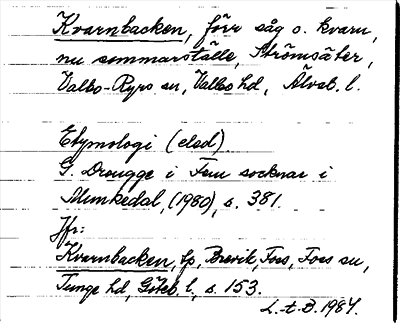 Kvarnbacken, förr såg o. kvarn,
nu sommarställe, Strömsäter,
Valbo-Ryrs sn, Valbo hd, Älvsb. l.
Etymologi (clsd).
G. Drougge i Fem socknar i
Munkedal, (1980), s. 381.
Jfr:
Kvarnbacken, lp, Brevik, Foss, Foss sn,
Tunge hd, Göteb. l, s. 153.
L.t.B. 1987.